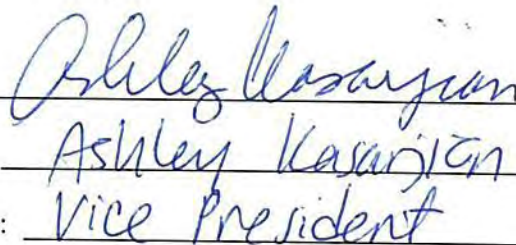 Ashley Kasarjian
Ashley Kasarjian
: Vice President